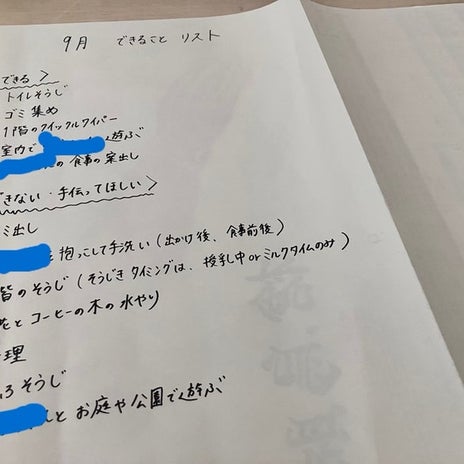 9月 できること リスト
できる>
トイレそうじ
ゴミ集め
1階のクイックルワイパー
室内で 遊ぶ
の食事の味出し
きない・手伝ってほしい>
ミ出し
抱っこして手洗い(出かけ後、食事前後)
階のそうじ(そうじき タイミングは、授乳中orミルクタイムのみ)
とコーヒーの木の水やり
理
ろそうじ
んと お庭や公園で遊ぶ